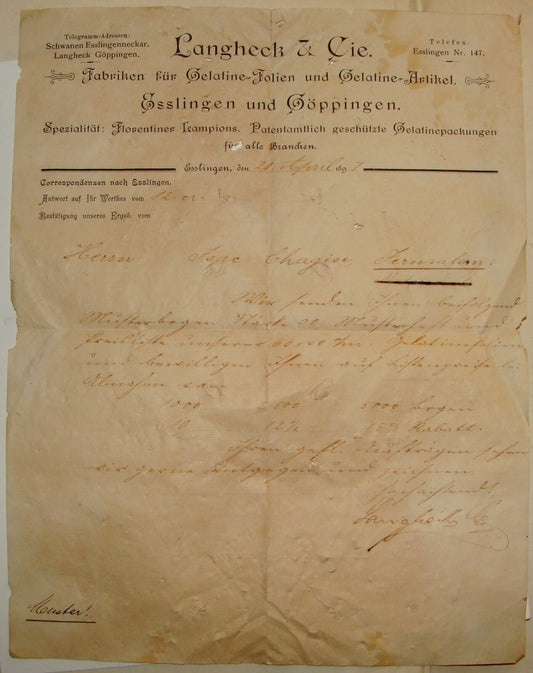 Telegramm-Adressen:
Schwanen Esslingenneckar.
Langheck Göppingen.
Langheck & Cie.
Telefon:
Esslingen Nr. 147.
Fabriken für Gelatine-Folien und Gelatine-Artikel.
Esslingen und Göppingen.
Spezialität: Florentiner Lampions. Patentamtlich geschützte Gelatinepackungen
für alle Branchen.
Esslingen, den 21. April 897
Correspondenzen nach Esslingen.
Antwort auf Ihr Werthes vom 12. cr.
Bestätigung unseres Ergeb. vom
Herrn Isac Chagise, Jerusalem.
Wir senden Ihnen beifolgend
Musterbogen Stärke 00, Musterheft und
Preisliste unserer Gelatinefolien
und bewilligen Ihnen auf Listenpreise bei
Abnahme von
1000 2500 5000 Bogen
10 12½ 15% Rabatt.
Ihren gefl. Aufträgen sehen
wir gerne entgegen und zeichnen
Hochachtend!
Langheck & Cie
Muster!